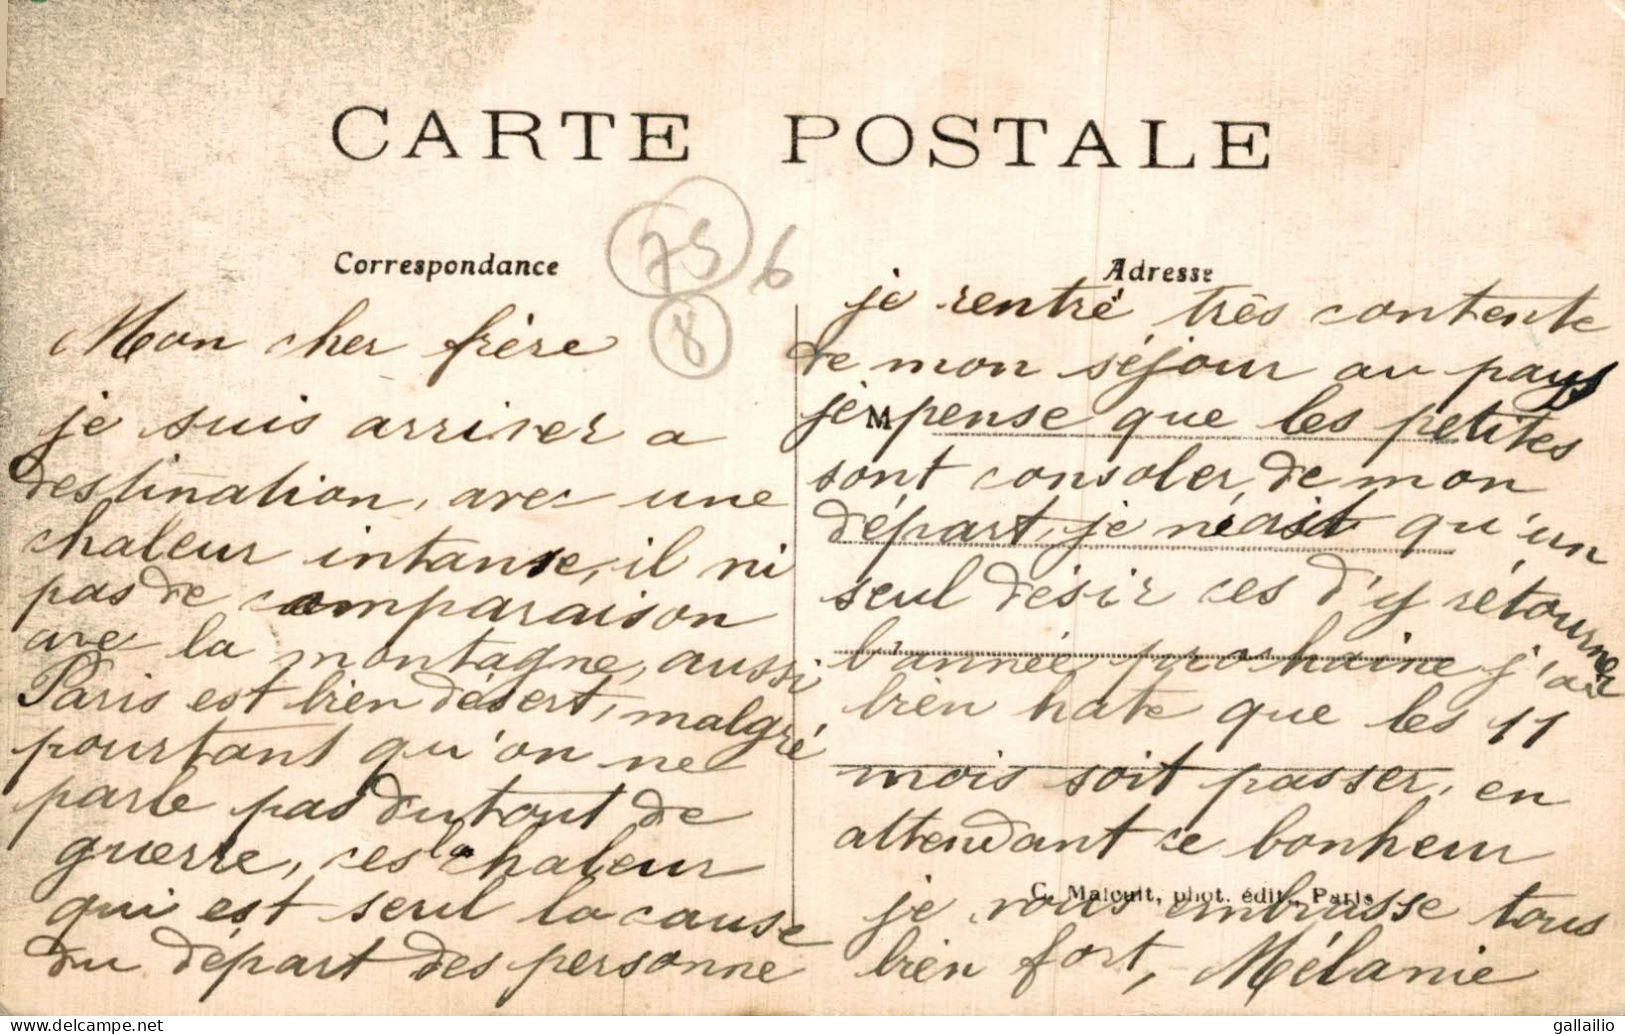 CARTE POSTALE
75 6
8
Correspondance
Mon cher frère
je suis arriver a
destination, avec une
chaleur intanse, il ni
pas de comparaison
ave la montagne, aussi
Paris est bien désert, malgré
pourtant qu'on ne
parle pas du tout de
guerre, ces la chaleur
qui est seul la cause
du départ des personne
Adresse
je rentré très contente
de mon séjour au pays
M
je pense que les petites
sont consoler de mon
départ, je n'ait qu'un
seul désir ces d'y rétourner
l'année prochaine j'ai
bien hate que les 11
mois soit passer, en
attendant ce bonheur
C. Malcuit, phot. édit., Paris
je vous embrasse tous
bien fort, Mélanie
gallailio
www.delcampe.net